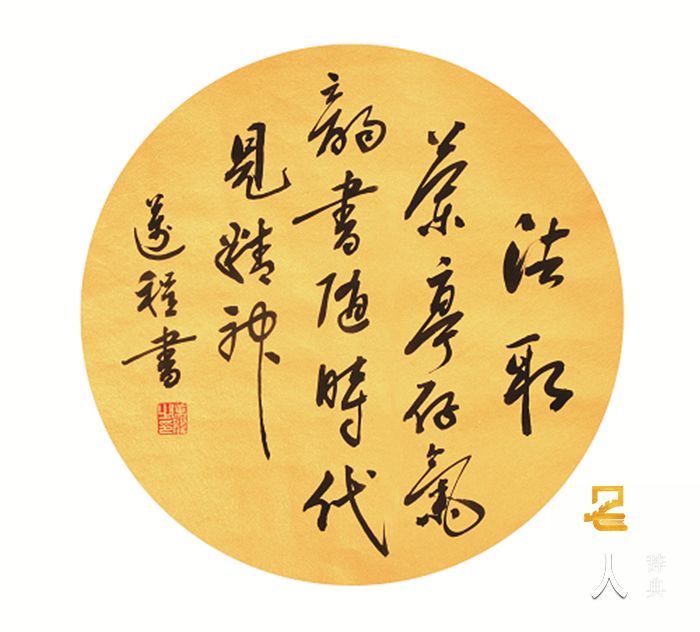 法取
蘭亭存氣
韻書隨時代
見精神
萬程書
人
辞典